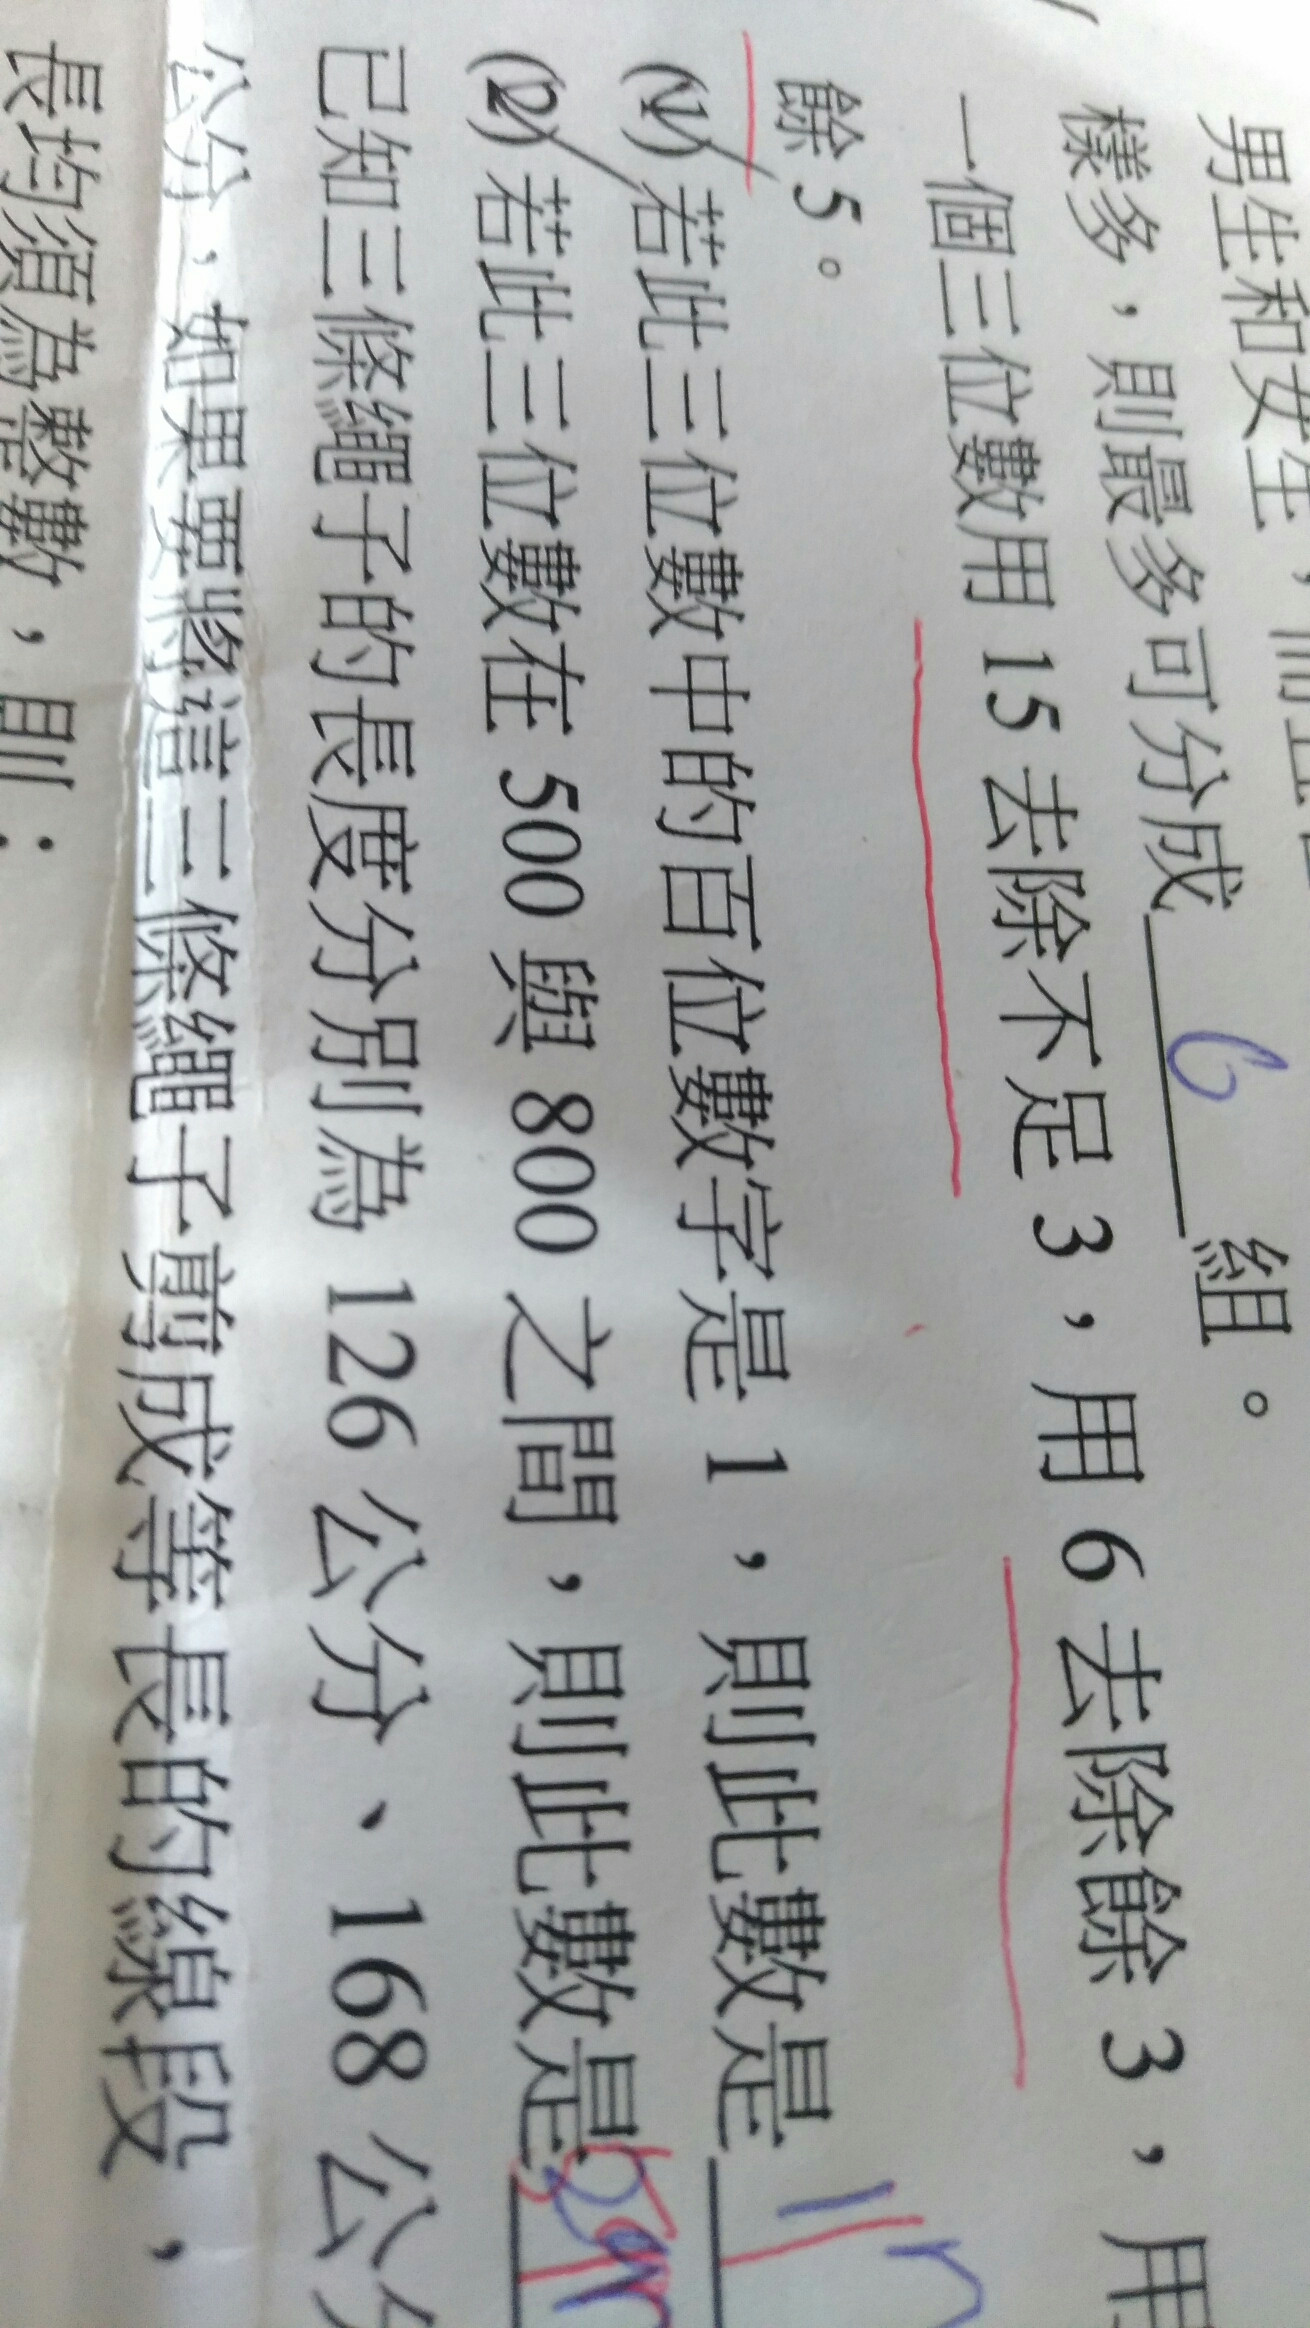 男生和女生，而且
樣多，則最多可分成 6 組。
一個三位數用 15 去除不足 3，用 6 去除餘 3，用
餘 5。
(1) 若此三位數中的百位數字是 1，則此數是
(2) 若此三位數在 500 與 800 之間，則此數是
已知三條繩子的長度分別為 126 公分、168 公分
公分，如果要將這三條繩子剪成等長的線段，
長均須為整數，則：